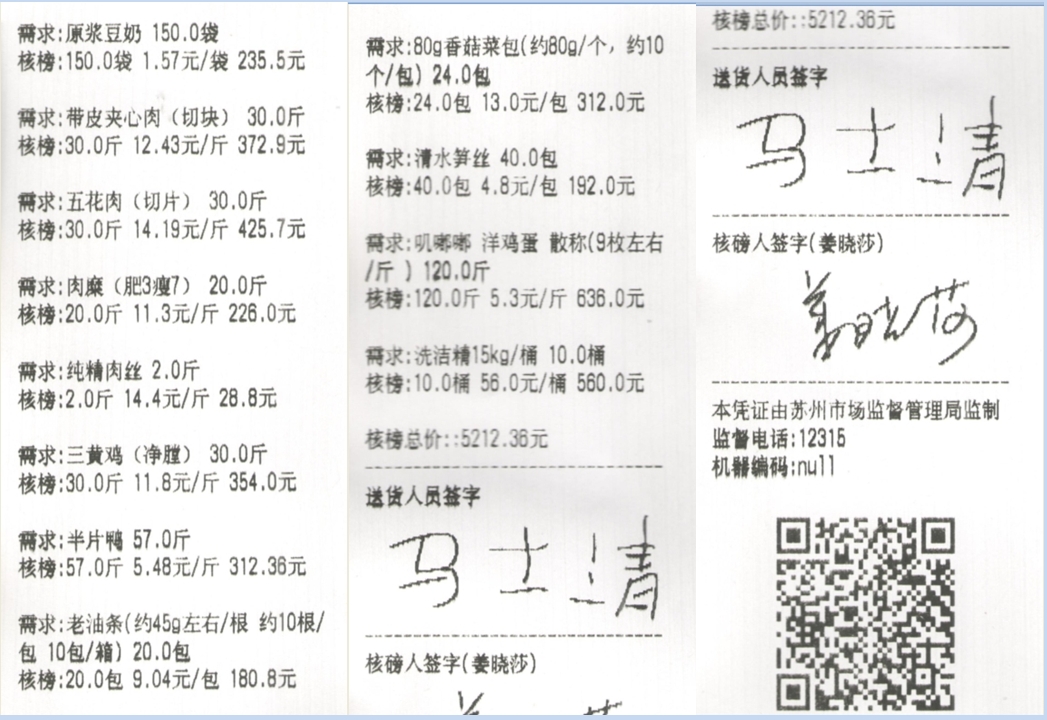 需求:原浆豆奶 150.0袋
核榜:150.0袋 1.57元/袋 235.5元
需求:带皮夹心肉（切块） 30.0斤
核榜:30.0斤 12.43元/斤 372.9元
需求:五花肉（切片） 30.0斤
核榜:30.0斤 14.19元/斤 425.7元
需求:肉糜（肥3瘦7） 20.0斤
核榜:20.0斤 11.3元/斤 226.0元
需求:纯精肉丝 2.0斤
核榜:2.0斤 14.4元/斤 28.8元
需求:三黄鸡（净膛） 30.0斤
核榜:30.0斤 11.8元/斤 354.0元
需求:半片鸭 57.0斤
核榜:57.0斤 5.48元/斤 312.36元
需求:老油条(约45g左右/根 约10根/
包 10包/箱) 20.0包
核榜:20.0包 9.04元/包 180.8元
需求:80g香菇菜包(约80g/个，约10
个/包) 24.0包
核榜:24.0包 13.0元/包 312.0元
需求:清水笋丝 40.0包
核榜:40.0包 4.8元/包 192.0元
需求:叽嘟嘟 洋鸡蛋 散称(9枚左右
/斤 ) 120.0斤
核榜:120.0斤 5.3元/斤 636.0元
需求:洗洁精15kg/桶 10.0桶
核榜:10.0桶 56.0元/桶 560.0元
核榜总价::5212.36元
送货人员签字
马士清
核磅人签字(姜晓莎)
核榜总价::5212.36元
送货人员签字
马士清
核磅人签字(姜晓莎)
姜晓莎
本凭证由苏州市场监督管理局监制
监督电话:12315
机器编码:null